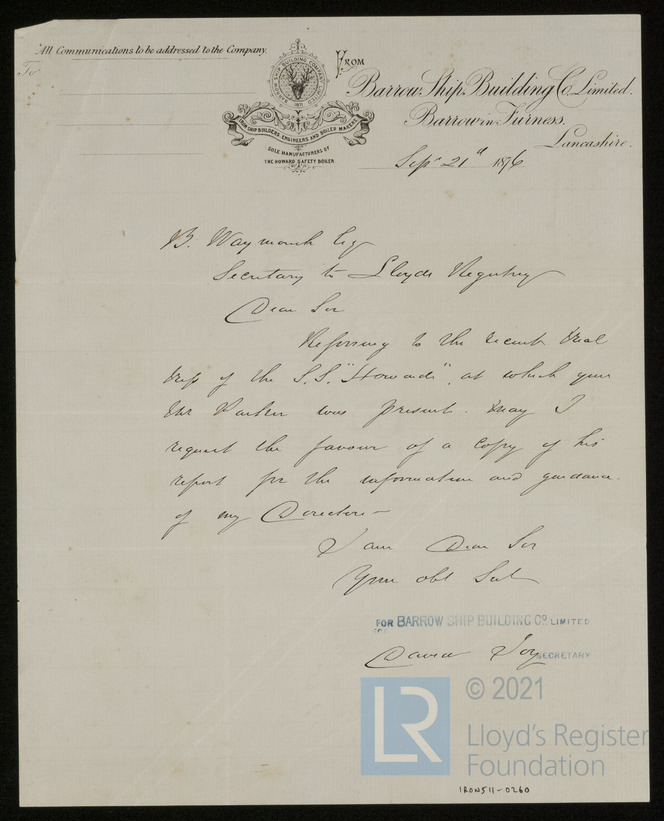 All Communications to be addressed to the Company.
To
BARROW SHIP BUILDING COMPANY LIMITED
IRON SHIP BUILDERS, ENGINEERS AND BOILER MAKERS
SOLE MANUFACTURERS OF
THE HOWARD SAFETY BOILER
From
Barrow Ship Building Co. Limited.
Barrow in Furness.
Lancashire.
Sept 21st 1876
B. Waymouth Esq
Secretary to Lloyds Registry
Dear Sir
Referring to the recent trial
trip of the S.S. "Howard", at which your
Mr Parker was present. May I
request the favour of a copy of his
report for the information and guidance
of my Directors
I am Dear Sir
Your obt Svt
FOR BARROW SHIP BUILDING CO. LIMITED
David Joy
SECRETARY
LR
© 2021
Lloyd's Register
Foundation
IRON511-0260